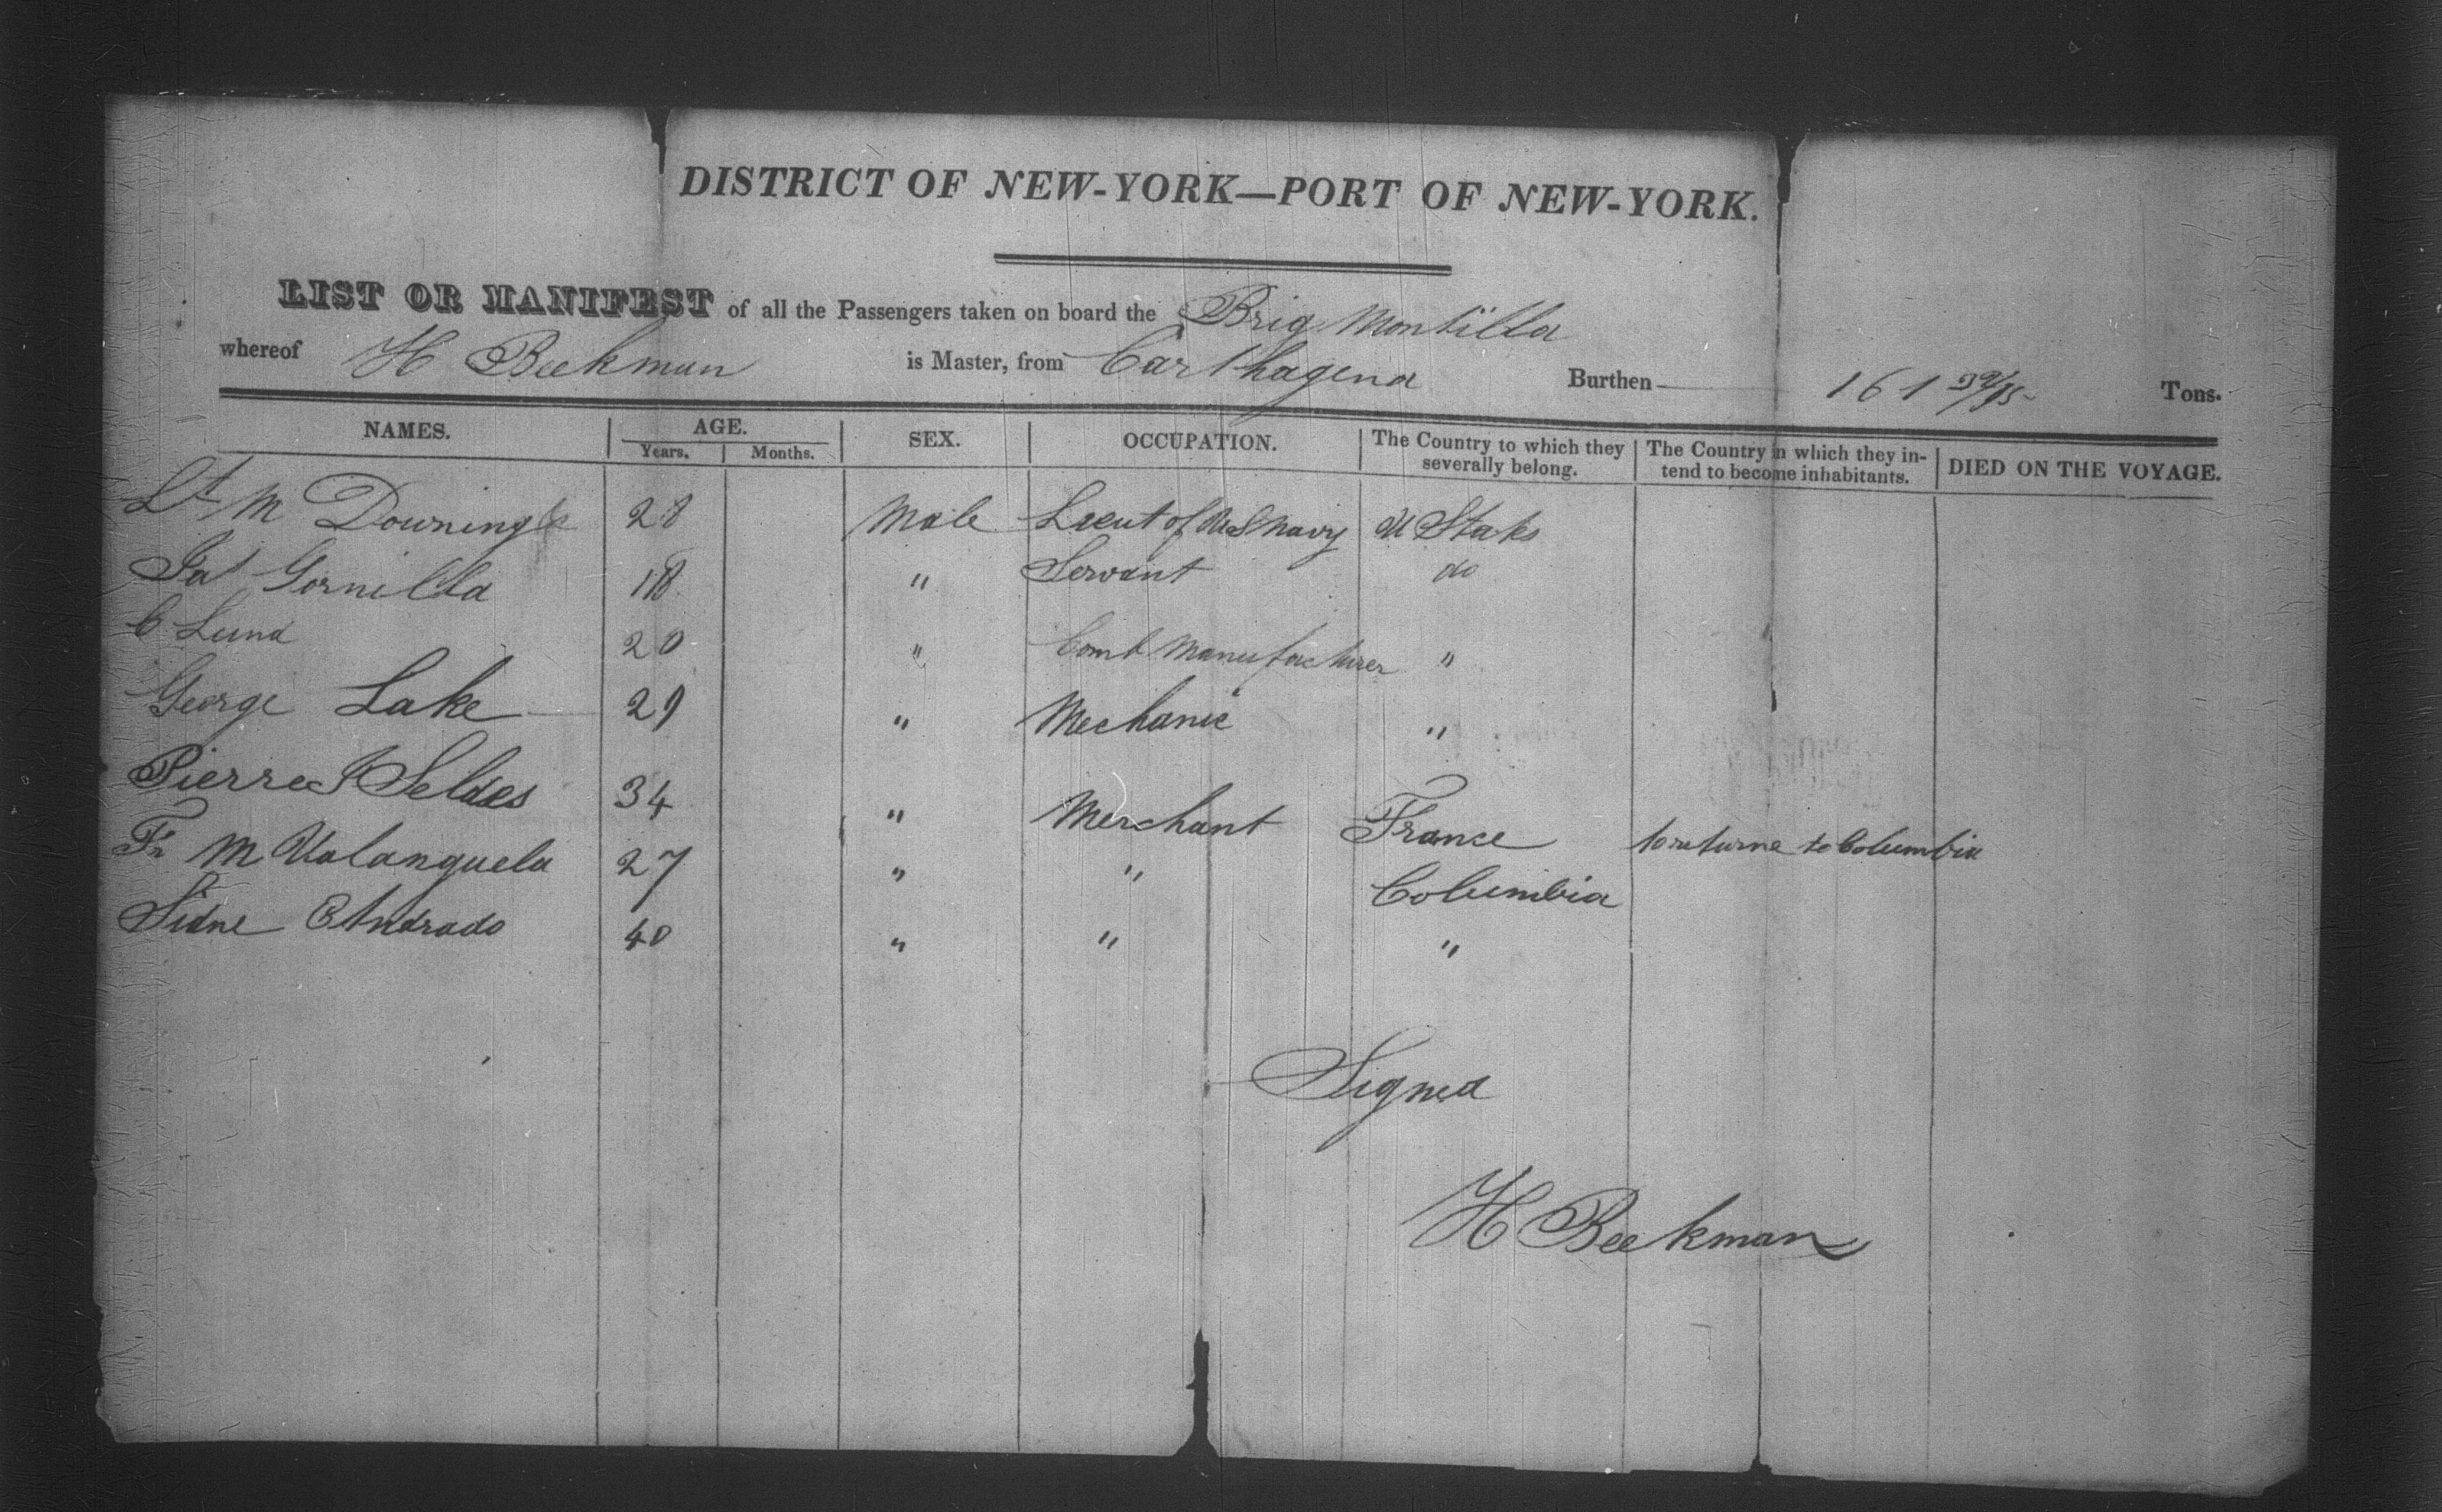 DISTRICT OF NEW-YORK—PORT OF NEW-YORK.
LIST OR MANIFEST of all the Passengers taken on board the Brig Montilla
whereof H Beekman is Master, from Carthagena Burthen 161 Tons.
NAMES. AGE. Years. Months. SEX. OCCUPATION. The Country to which they severally belong. The Country in which they intend to become inhabitants. DIED ON THE VOYAGE.
Lt M Downing 28 Male Lieut of US Navy U States
Gornilla 18 " Servant do
C Lund 20 " Comb Manufacturer "
George Lake 29 " Mechanic "
Pierre 34 " Merchant France to returne to Columbia
Fr M Valanquela 27 " " Columbia
Andrado 40 " " "
Signed
H Beekman